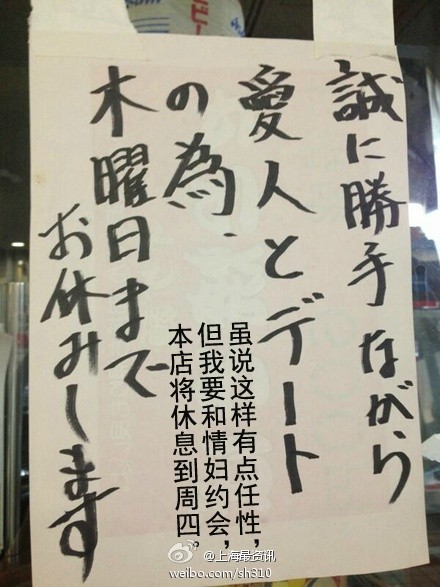 誠に勝手ながら
愛人とデート
の為、
木曜日まで
お休みします
虽说这样有点任性，
但我要和情妇约会，
本店将休息到周四。
@上海最资讯
weibo.com/sh310